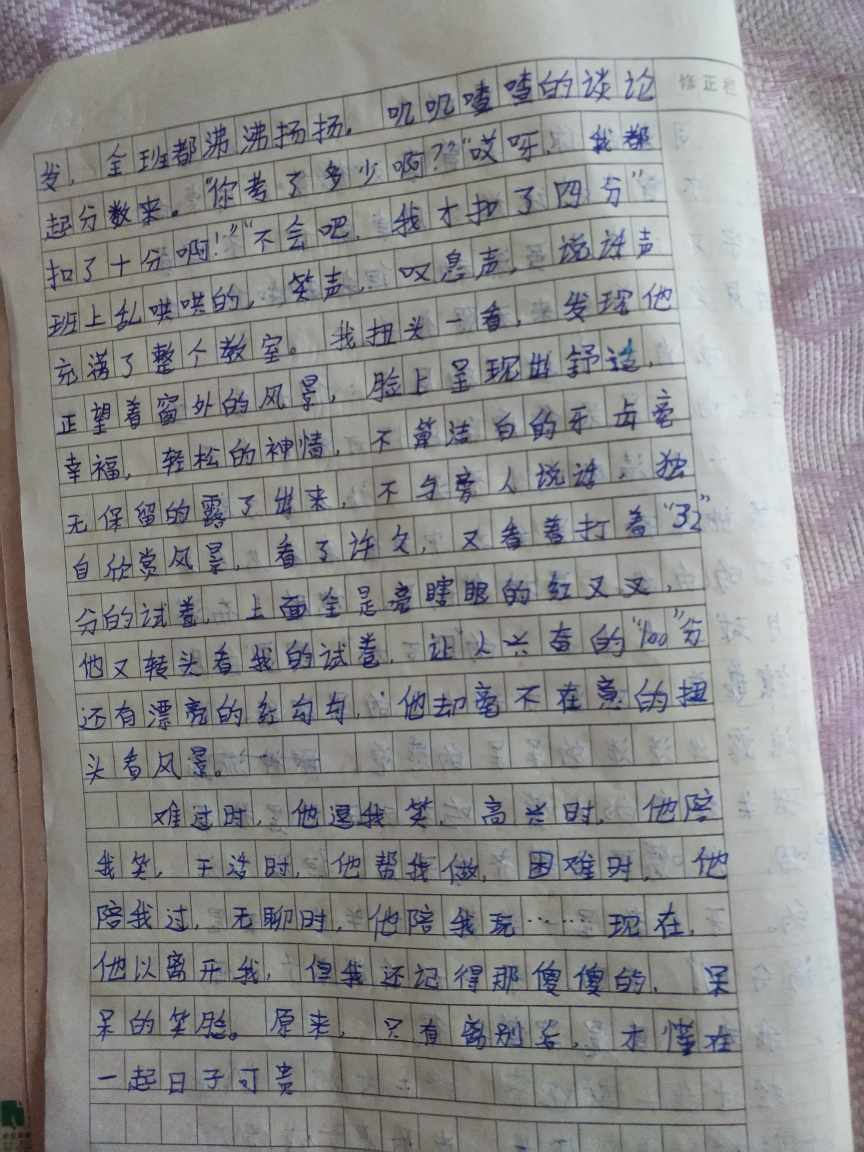 修正栏
发，全班都沸沸扬扬。叽叽喳喳的谈论
起分数来。“你考了多少啊？”“哎呀，我都
扣了十分啊！”“不会吧，我才扣了四分”
班上乱哄哄的，笑声，叹息声，说话声
充满了整个教室。我扭头一看，发现他
正望着窗外的风景，脸上呈现出舒适，
幸福，轻松的神情，不算洁白的牙齿毫
无保留的露了出来，不与旁人说话，独
自欣赏风景，看了许久，又看着打着“32”
分的试卷，上面全是亮瞎眼的红叉叉，
他又转头看我的试卷，让人兴奋的“100”分
还有漂亮的红勾勾，他却毫不在意的扭
头看风景。
难过时，他逗我笑，高兴时，他陪
我笑，干活时，他帮我做，困难时，他
陪我过，无聊时，他陪我玩……现在，
他以离开我，但我还记得那傻傻的，呆
呆的笑脸。原来，只有离别后，才懂在
一起日子可贵